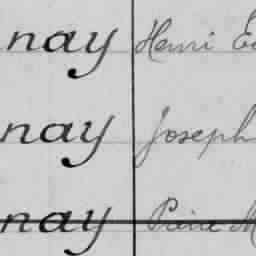 nay Henri Ed
nay Joseph
nay Pierre M